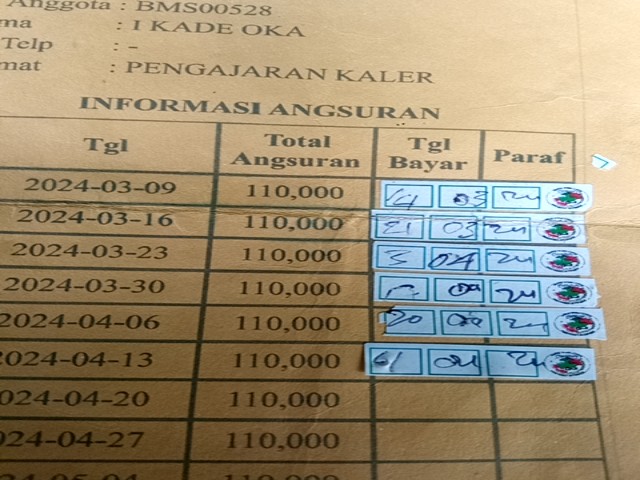 Anggota : BMS00528
ma : I KADE OKA
Telp : -
mat : PENGAJARAN KALER
INFORMASI ANGSURAN
Tgl Total Angsuran Tgl Bayar Paraf
2024-03-09 110,000 14 03 24
2024-03-16 110,000 21 03 24
2024-03-23 110,000 5 04 24
2024-03-30 110,000 04 24
2024-04-06 110,000 20 04 24
2024-04-13 110,000 04 24
024-04-20 110,000
024-04-27 110,000